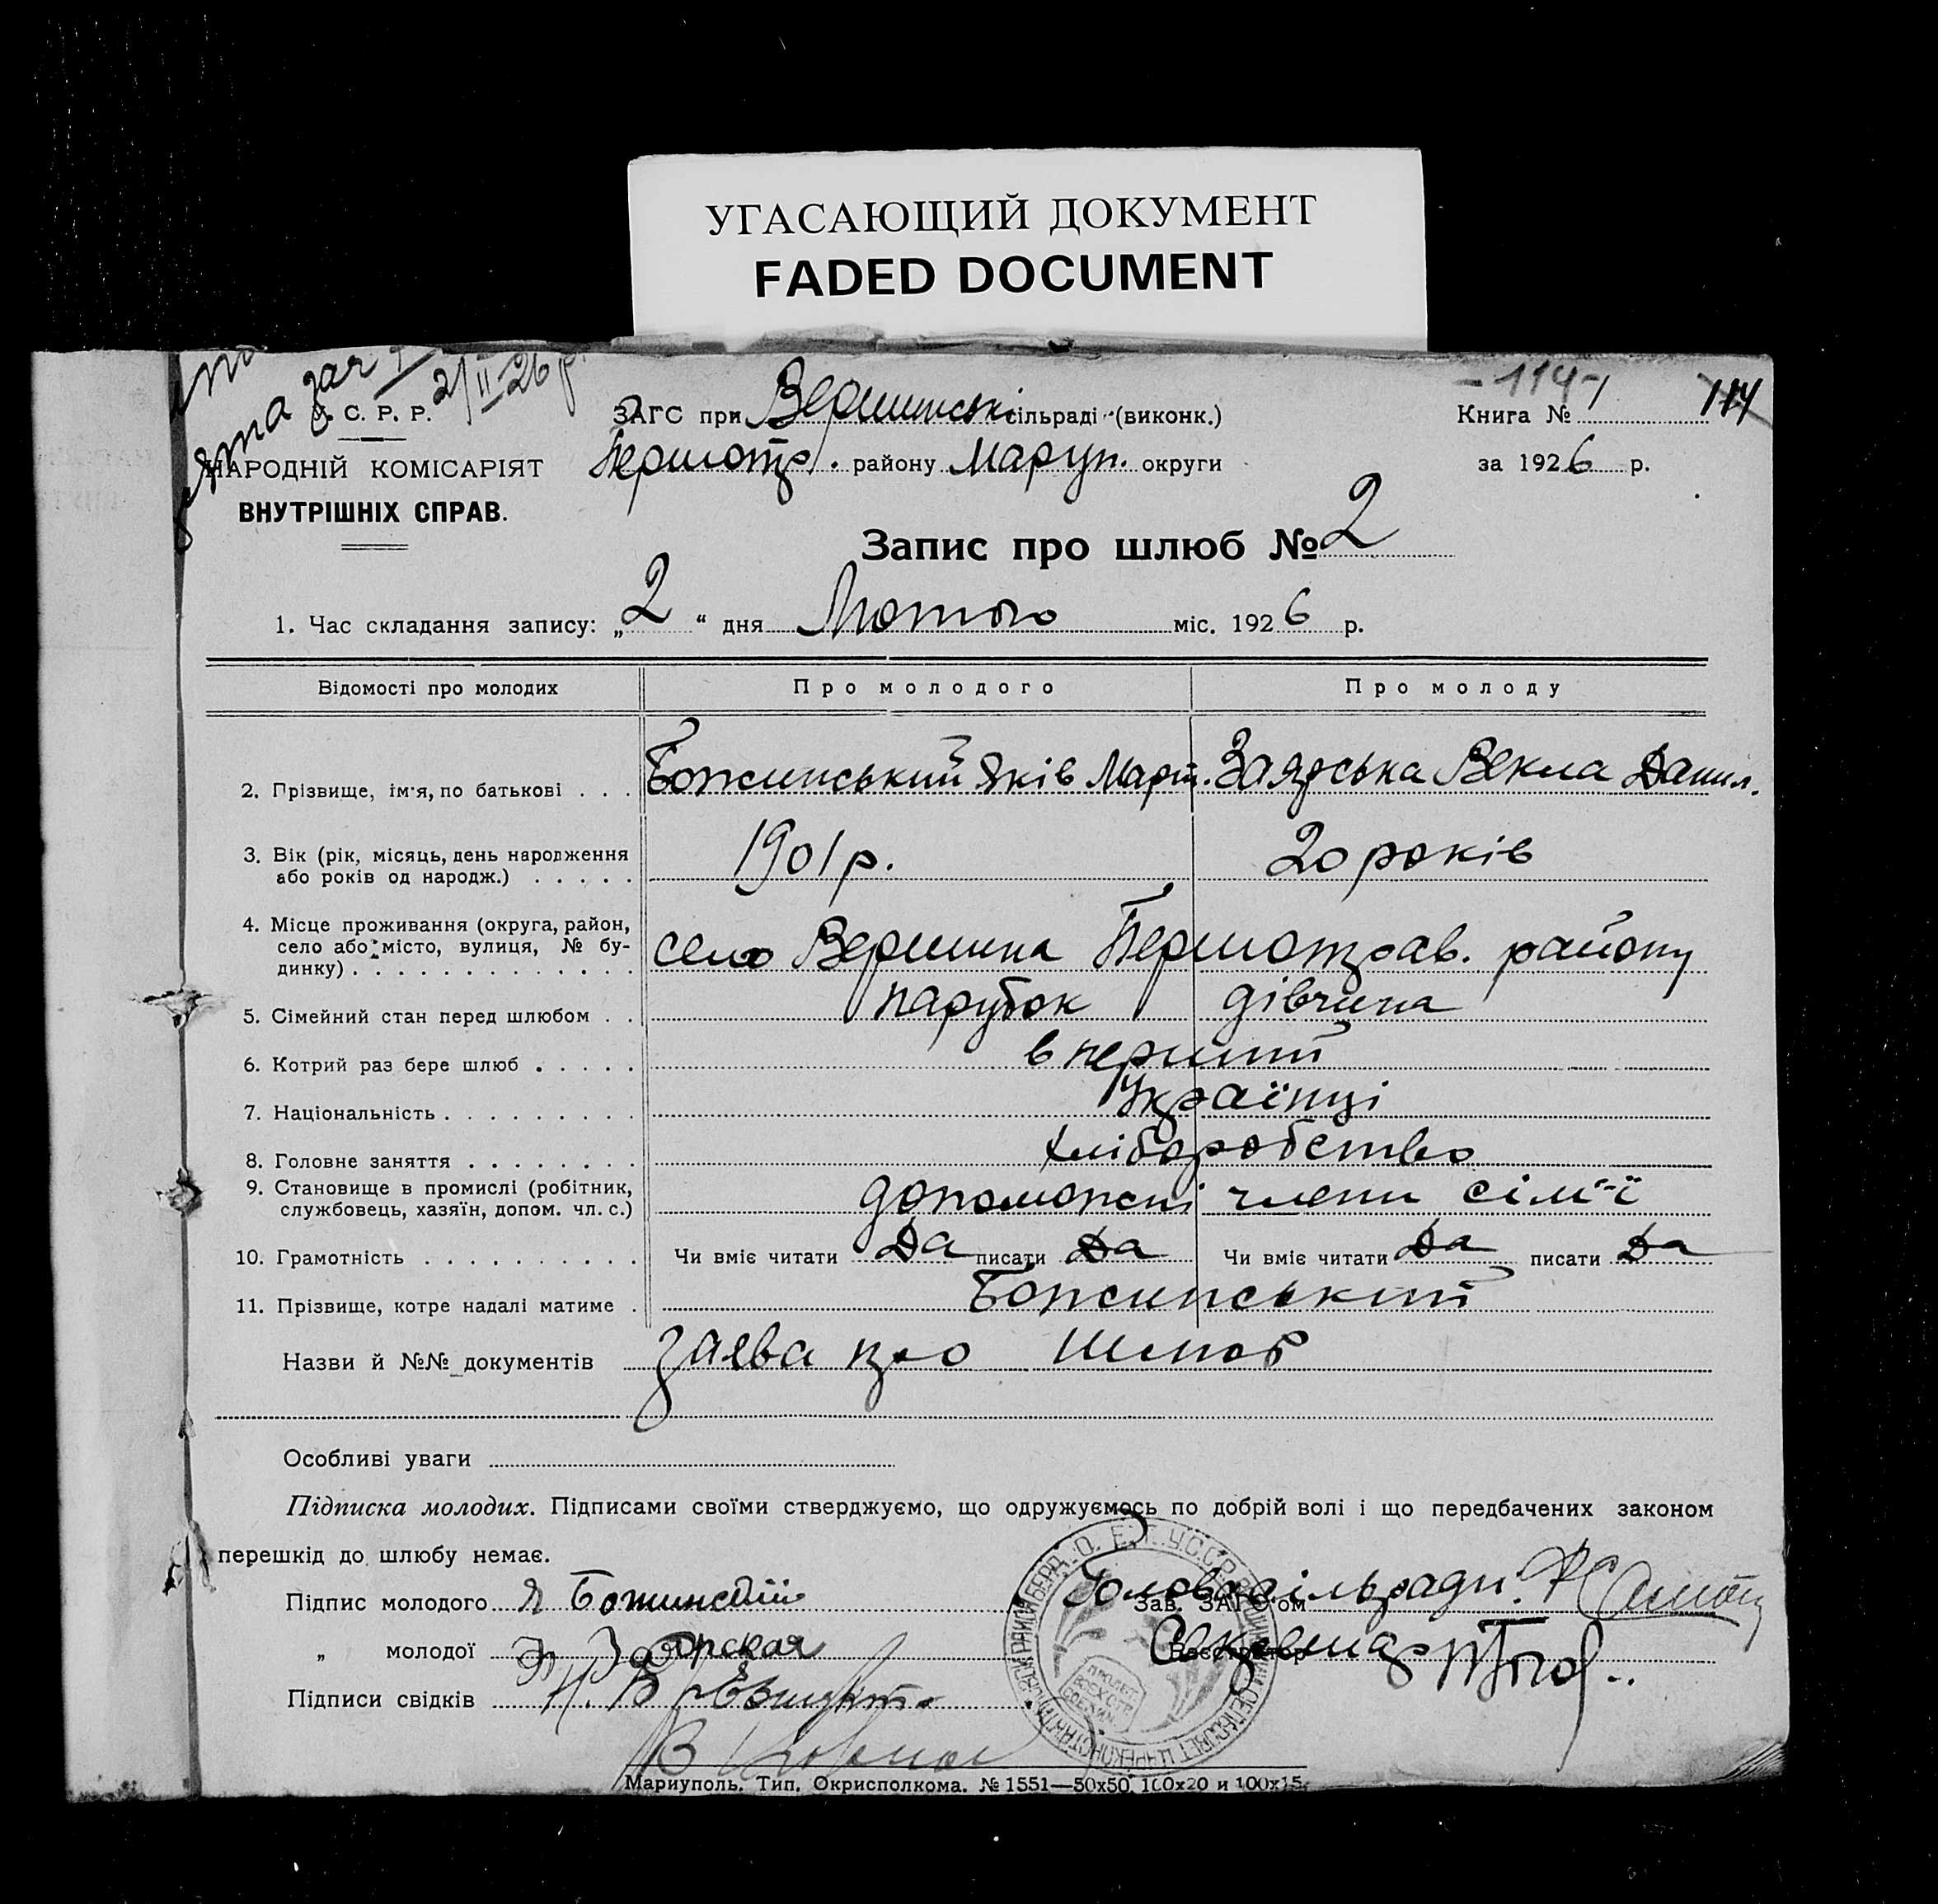 УГАСАЮЩИЙ ДОКУМЕНТ
FADED DOCUMENT
2/II-26 р.
-114-
114
У. С. Р. Р.
ЗАГС при Вершинські сільраді (виконк.)
Книга № 1
НАРОДНІЙ КОМІСАРІЯТ
Першотр. району Маруп. округи
за 1926 р.
ВНУТРІШНІХ СПРАВ.
Запис про шлюб № 2
1. Час складання запису: „2“ дня Лютого міс. 1926 р.
Відомості про молодих
Про молодого
Про молоду
2. Прізвище, ім'я, по батькові . . . Божинський Яків Март. Заярська Векла Данил.
3. Вік (рік, місяць, день народження
або років од народж.) . . . . . 1901 р. 20 років
4. Місце проживання (округа, район,
село або місто, вулиця, № бу-
динку) . . . . . . . . . . . . . село Вершина Першотрав. району
5. Сімейний стан перед шлюбом . . парубок дівчина
6. Котрий раз бере шлюб . . . . . вперший
7. Національність . . . . . . . . . Українці
8. Головне заняття . . . . . . . . хліборобство
9. Становище в промислі (робітник,
службовець, хазяїн, допом. чл. с.) допоможні члени сім'ї
10. Грамотність . . . . . . . . . . Чи вміє читати Да писати Да Чи вміє читати Да писати Да
11. Прізвище, котре надалі матиме . Божинський
Назви й №№ документів заява про шлюб
Особливі уваги
Підписка молодих. Підписами своїми стверджуємо, що одружуємось по добрій волі і що передбачених законом
перешкід до шлюбу немає.
Підпис молодого Я Божинский
Голова сільради
Зав. ЗАГС'ом
„ молодої Заярская
Секретар
Підписи свідків
Мариуполь. Тип. Окрисполкома. № 1551—50х50, 100х20 и 100х15.